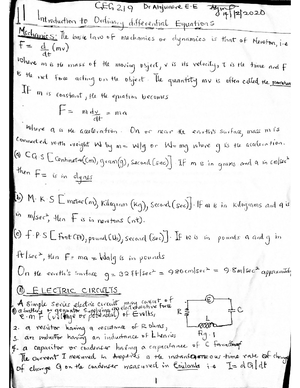 CEG 219 Dr Anyiwave E.E
11 Introduction to Ordinary differential Equations
Mechanics: The basic law of mechanics or dynamics is that of Newton, i.e
F = d/dt (mv)
where m is the mass of the moving object, v is its velocity, t is the time and F
is the net force acting on the object The quantity mv is often called the momentum
If m is constant, the the equation becomes
F = m dv/dt = ma
where a is the acceleration. On or near the earth's surface, mass m is
connected with weight W by m = W/g or W = mg where g is the acceleration.
(a) C.G.S [centimetre(cm), gram(g), second(sec)] If m is in grams and a in cm/sec²
then F = is in dynes
(b) M.K.S [meter(m), kilogram(kg), second(sec)]. If m is in kilograms and a is
in m/sec², then F is in newtons (nt).
(c) f.P.S [Foot(ft), pound(lb), second(sec)]: If W is in pounds a and g in
ft/sec², then F = ma = Wa/g is in pounds
On the earth's surface g = 32 ft/sec² = 980 cm/sec² = 9.8 m/sec² approximately
(2) ELECTRIC CIRCUITS
A simple series electric circuits may consist of
a battery or generator supplying an electromotive force
e.m.f (voltage or potential) of E volts,
2. a resistor having a resistance of R ohms,
3. an inductor having an inductance of L henries
4. a capacitor or condenser having a capacitance of C farads
The current I measured in Amperes is the instantaneous time rate of change
of charge Q on the condenser measured in Coulombs i.e I = dQ/dt
E
R
C
L
Fig 1
1